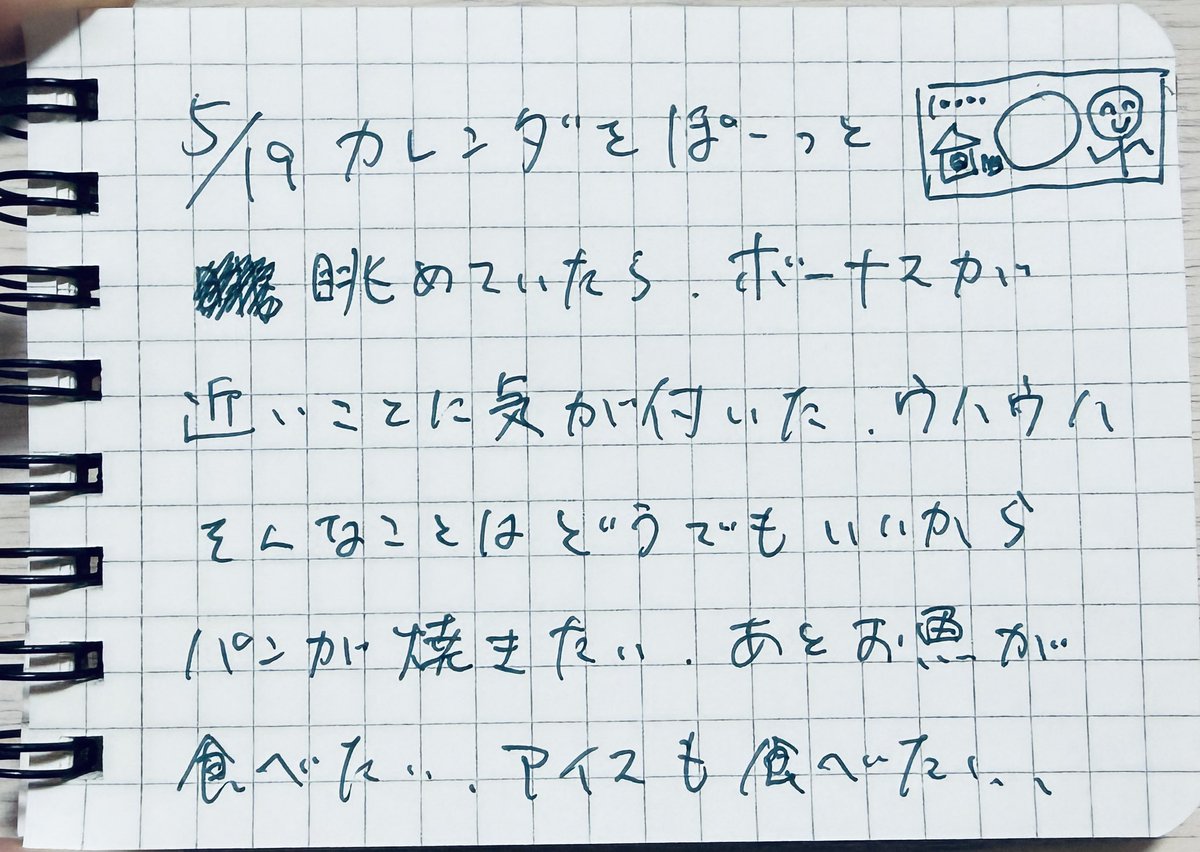 5/19 カレンダをぼーっと
眺めていたら．ボーナスが
近いことに気が付いた．ウハウハ
そんなことはどうでもいいから
パンが焼きたい．あとお魚が
食べたい．アイスも食べたい．